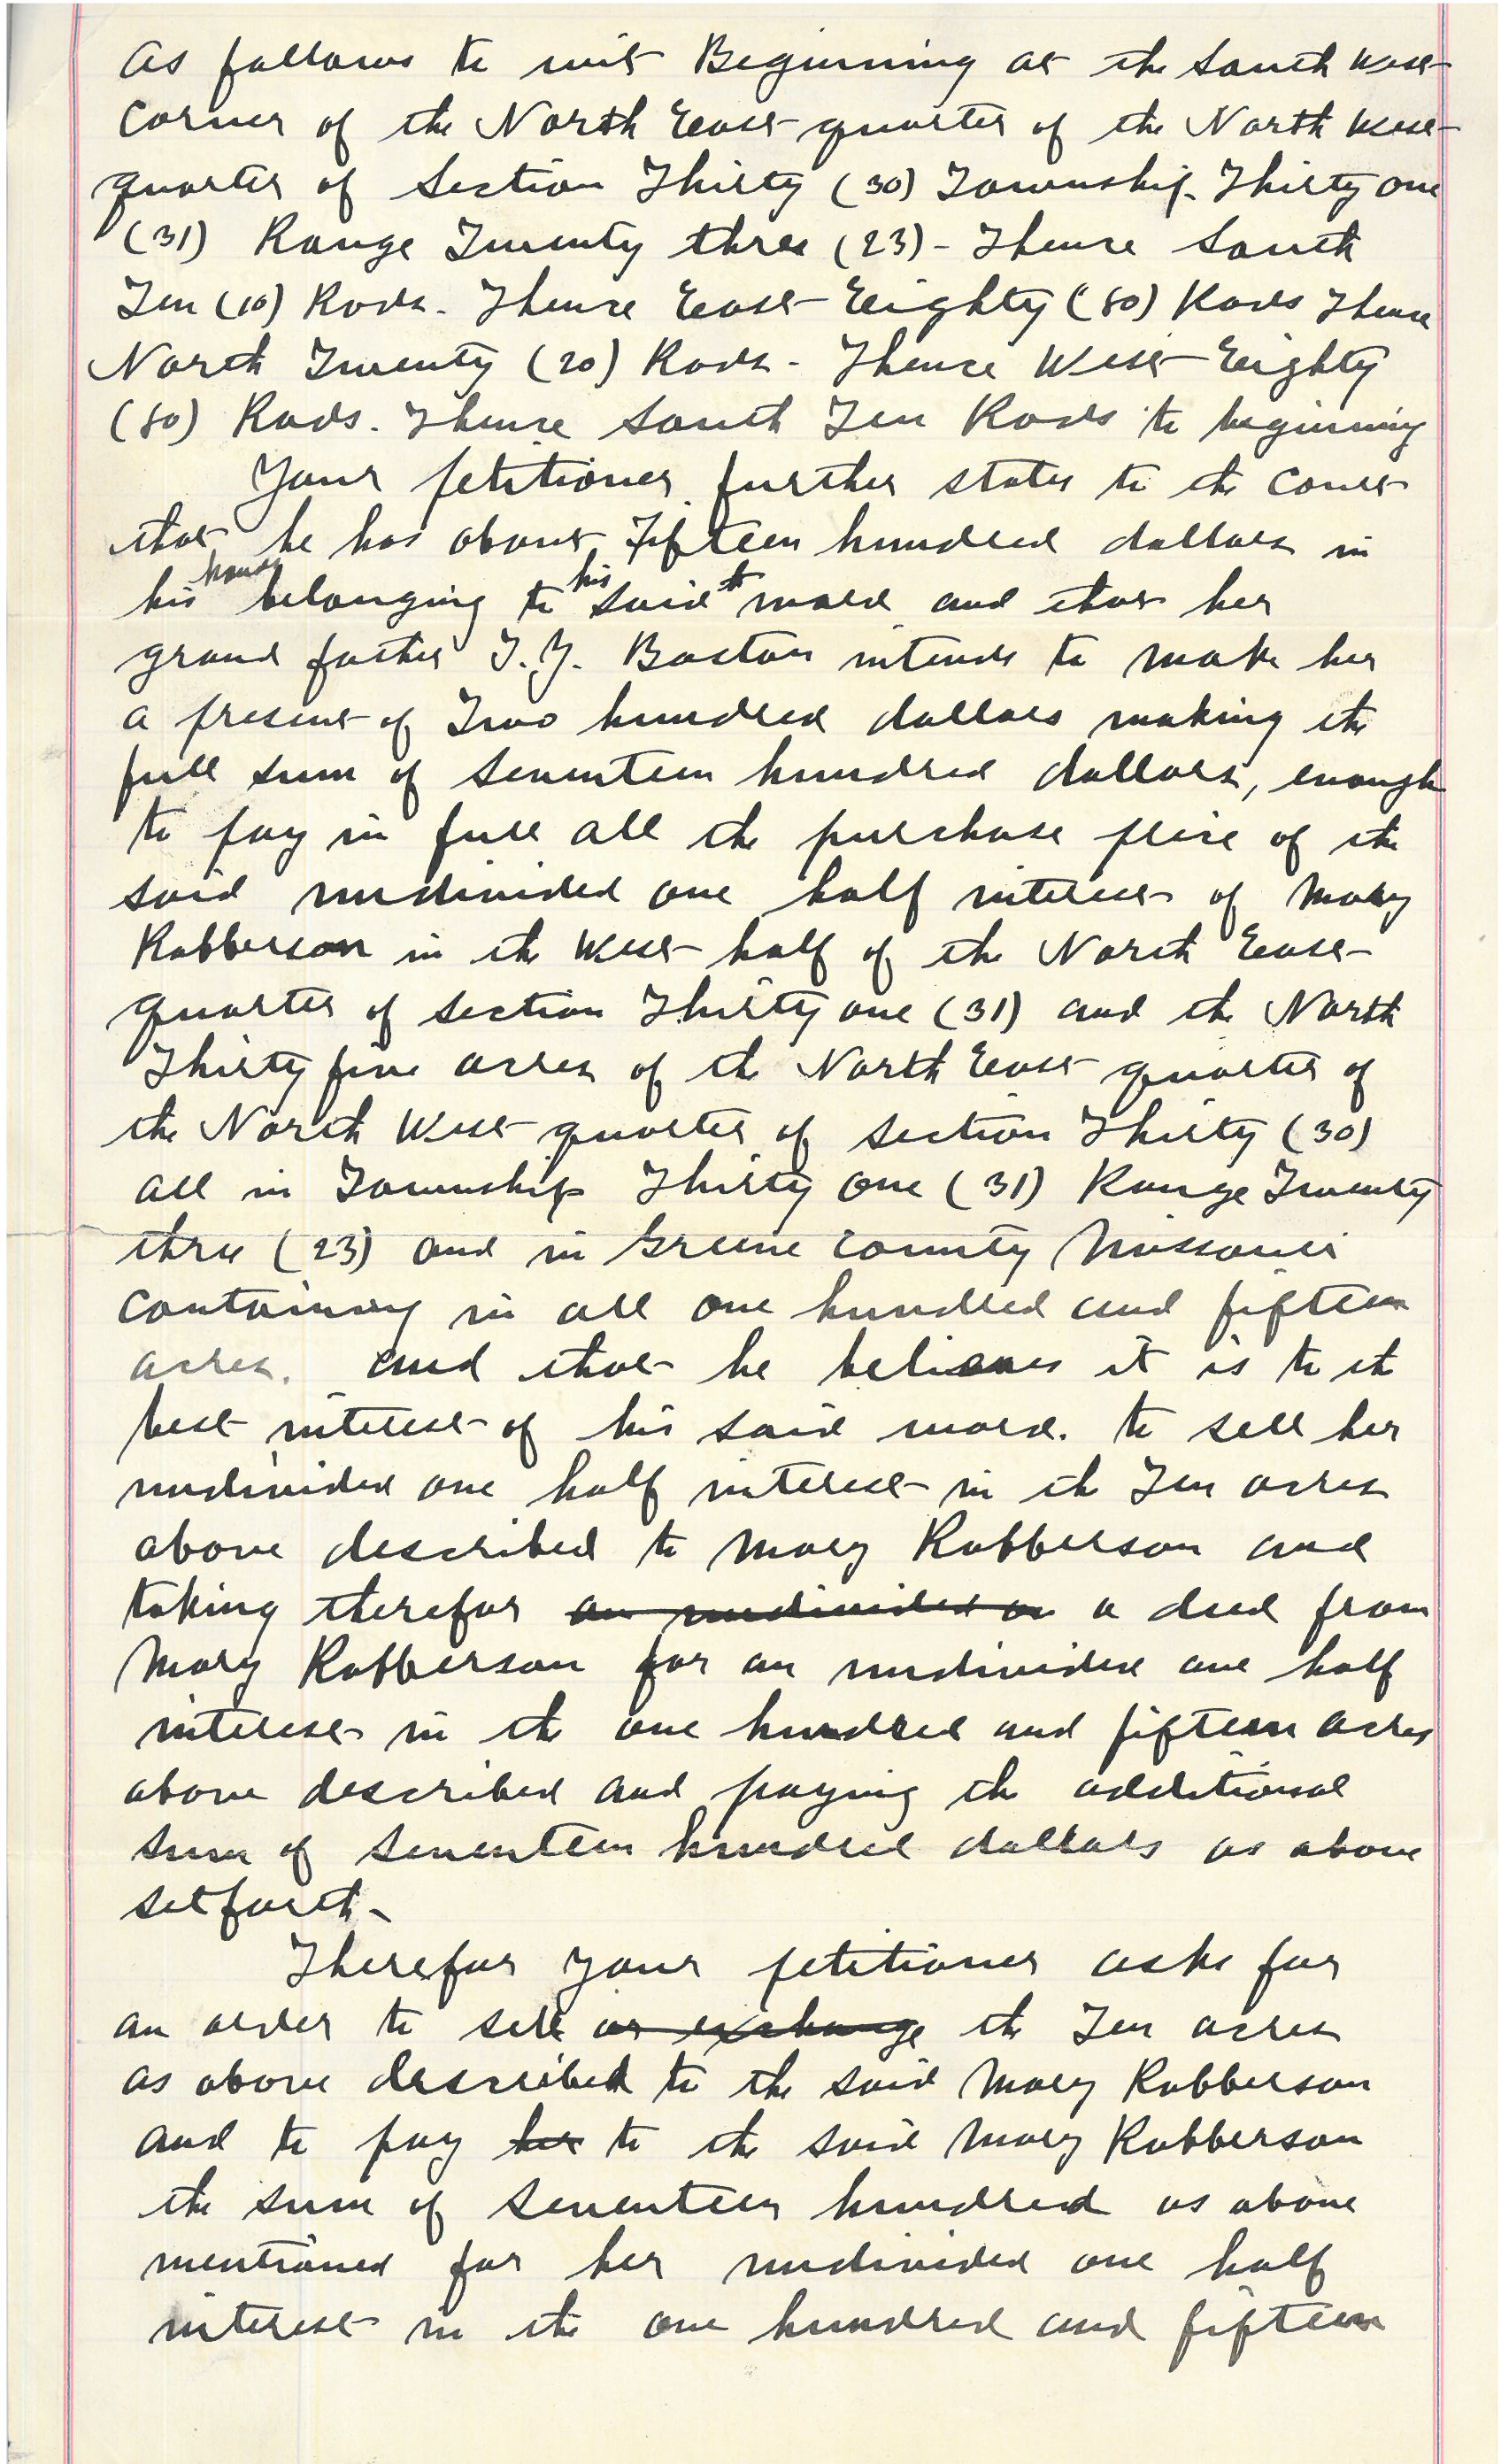 as follows to wit Beginning at the South West
Corner of the North East quarter of the North West
quarter of Section Thirty (30) Township Thirty one
(31) Range Twenty three (23) - Thence South
Ten (10) Rods. Thence East Eighty (80) Rods Thence
North Twenty (20) Rods - Thence West Eighty
(80) Rods. Thence South Ten Rods to beginning
Your petitioner further states to the Court
that he has about Fifteen hundred dollars in
his hands belonging to his said ward and that her
grand father T.Y. Baston intends to make her
a present of Two hundred dollars making the
full sum of Seventeen hundred dollars, enough
to pay in full all the purchase price of the
said undivided one half interest of Mary
Robberson in the West half of the North East
quarter of section Thirty one (31) and the North
Thirty five acres of the North East quarter of
the North West quarter of section Thirty (30)
all in Township Thirty one (31) Range Twenty
three (23) and in Greene County Missouri
Containing in all one hundred and fifteen
acres. and that he believes it is to the
best interest of his said ward. to sell her
undivided one half interest in the Ten acres
above described to Mary Robberson and
taking therefor an undivided on a deed from
Mary Robberson for an undivided one half
interest in the one hundred and fifteen acres
above described and paying the additional
sum of Seventeen hundred dollars as above
set forth -
Therefor your petitioner asks for
an order to sell or exchange the Ten acres
as above described to the said Mary Robberson
and to pay her to the said Mary Robberson
the sum of Seventeen hundred as above
mentioned for her undivided one half
interest in the one hundred and fifteen